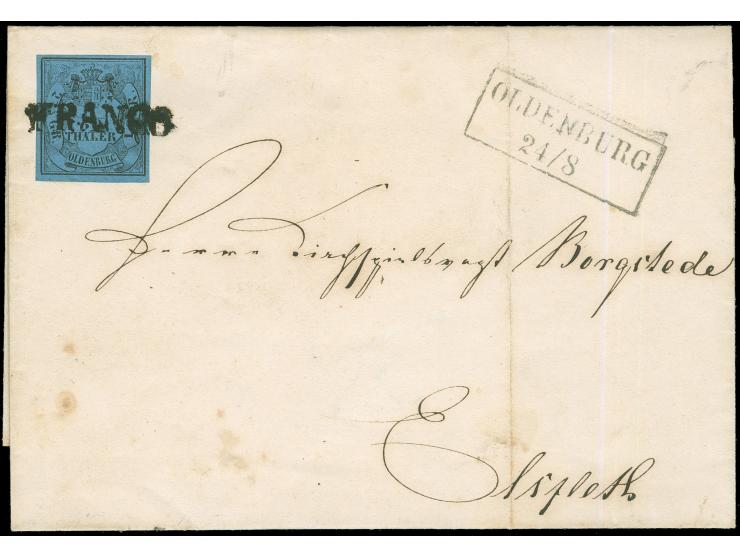 FRANCO
THALER
OLDENBURG
OLDENBURG
24/8
Herrn Kirchspielsvogt Borgstede
Elsfleth